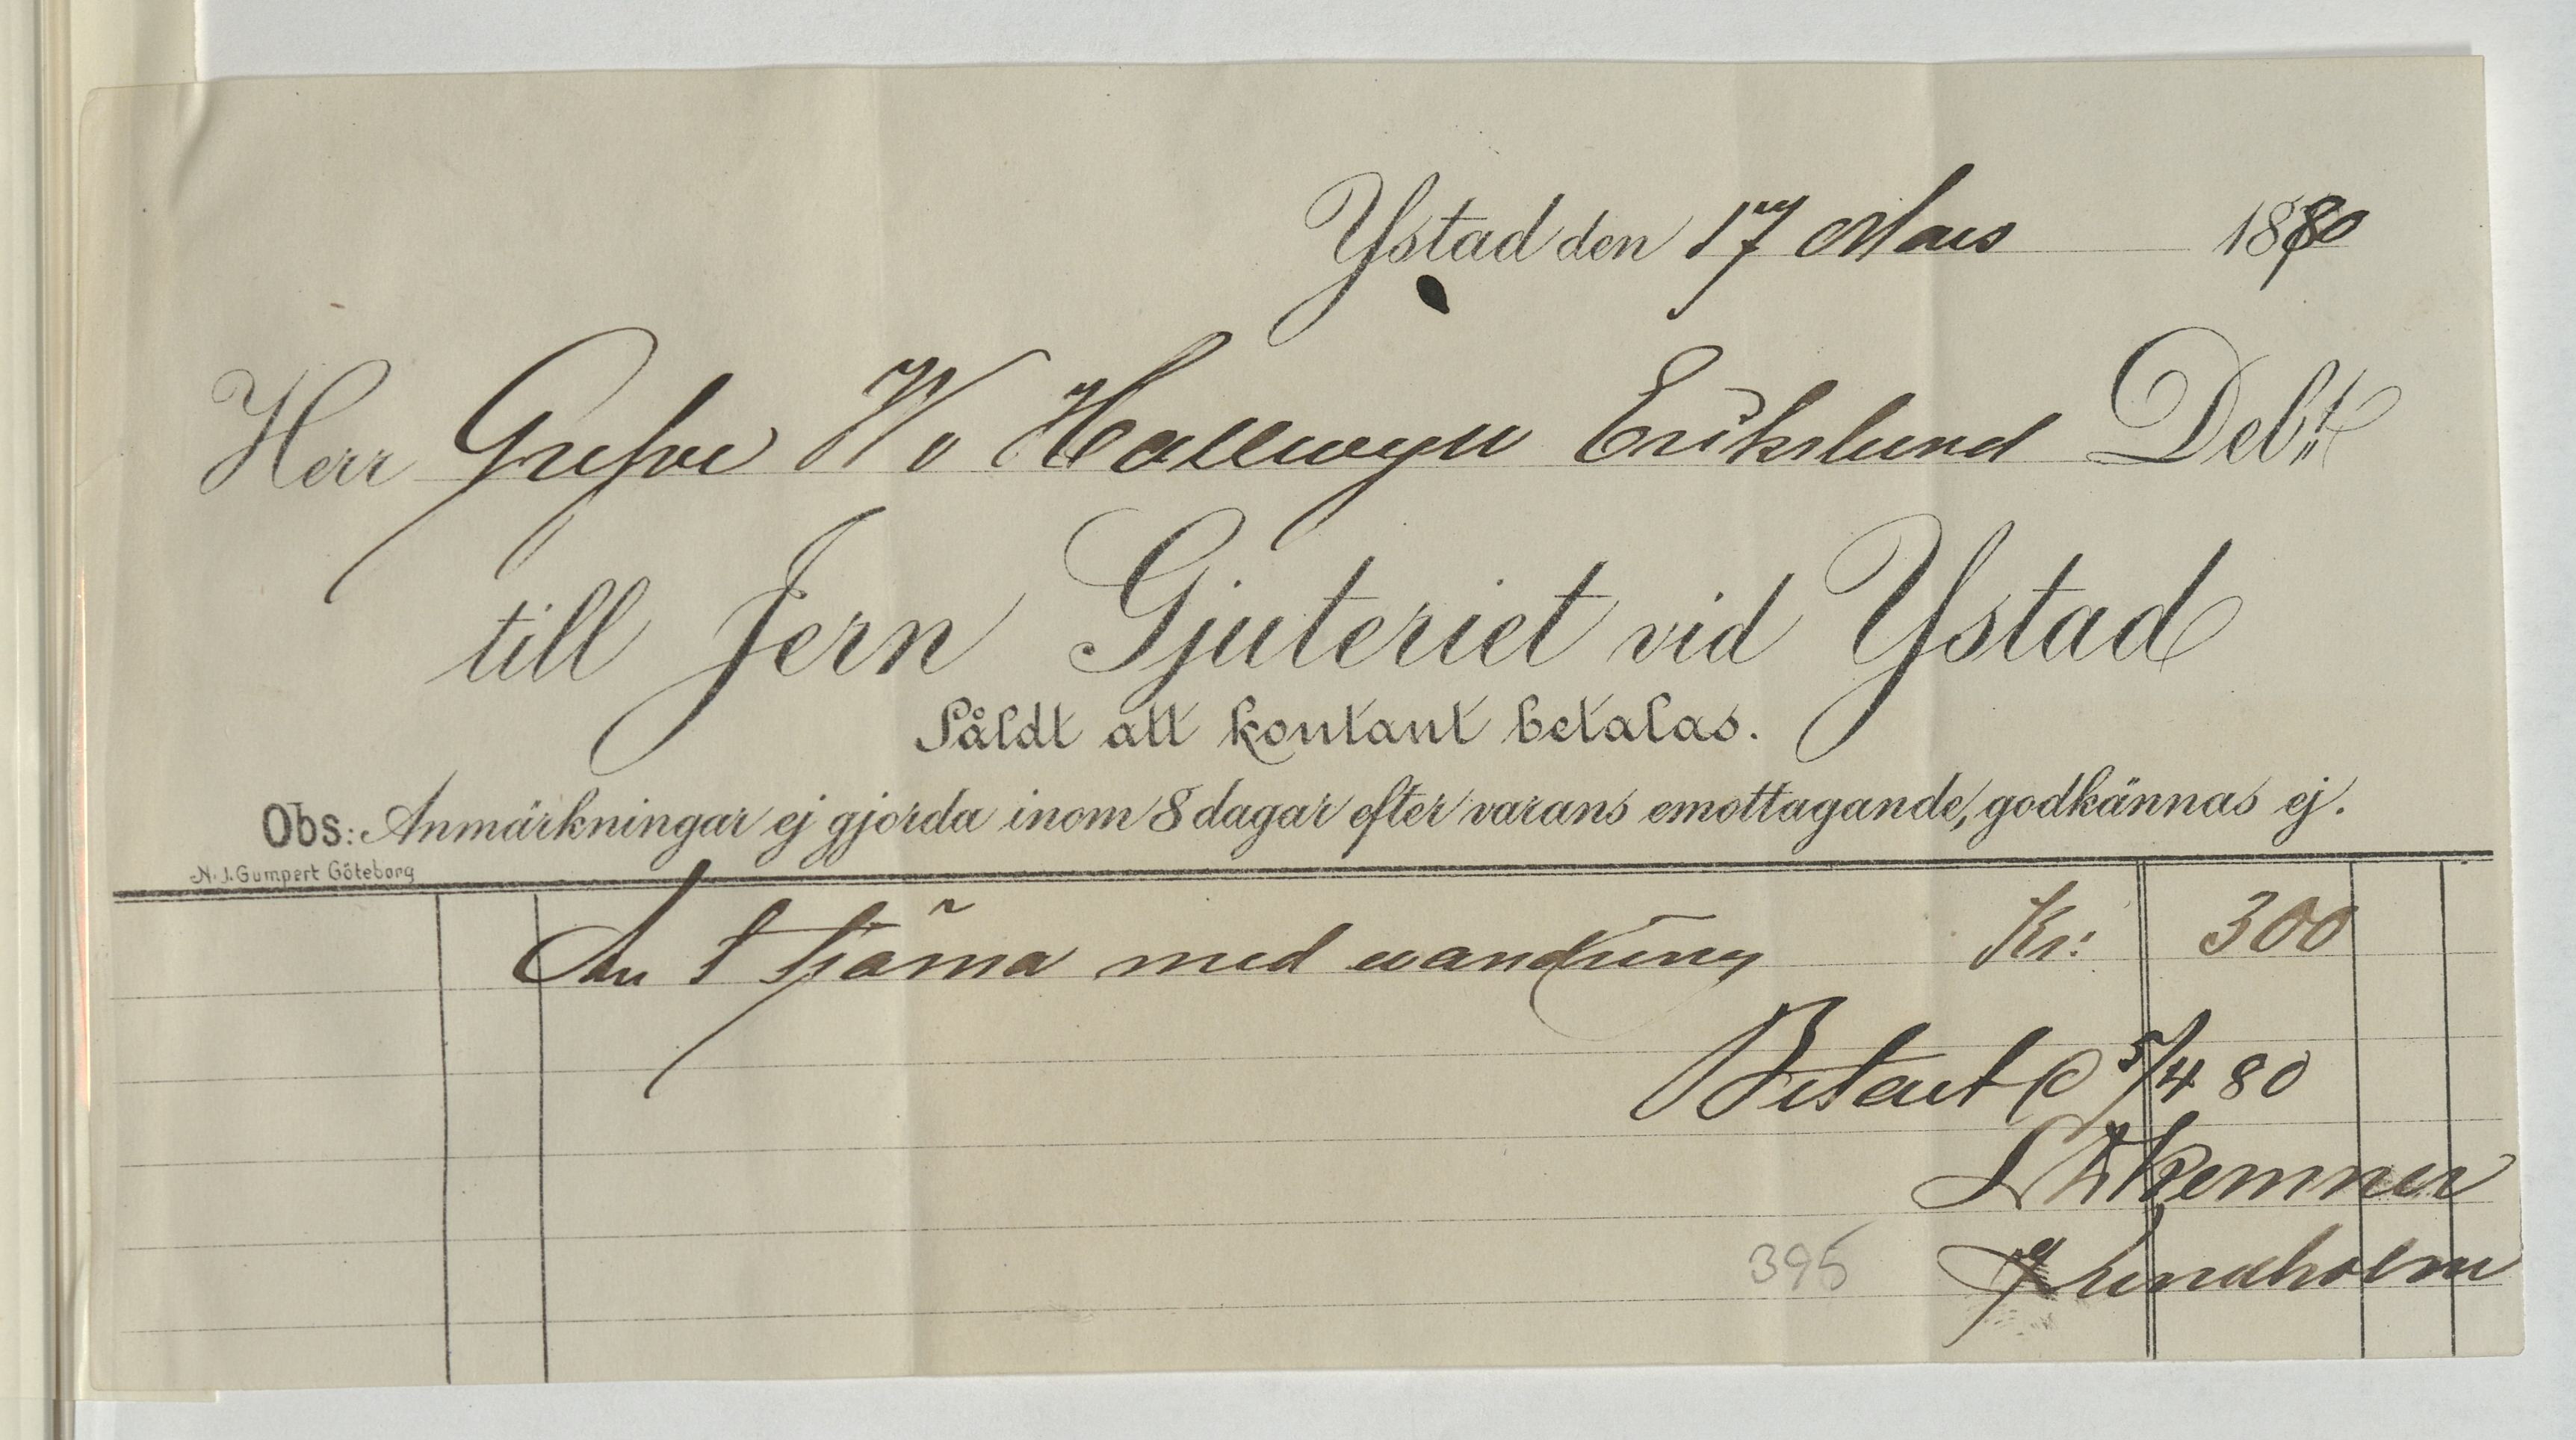 Ystad den 17 Mars 1880
Herr Grefve W v Hallwyll Erikslund Debt
till Jern Gjuteriet vid Ystad
Såldt att kontant betalas.
Obs: Anmärkningar ej gjorda inom 8 dagar efter varans emottagande, godkännas ej.
N. J. Gumpert Göteborg
An 1 med vandring Kr: 300
Betalt 5/4 80
Kemner
395 Lindholm